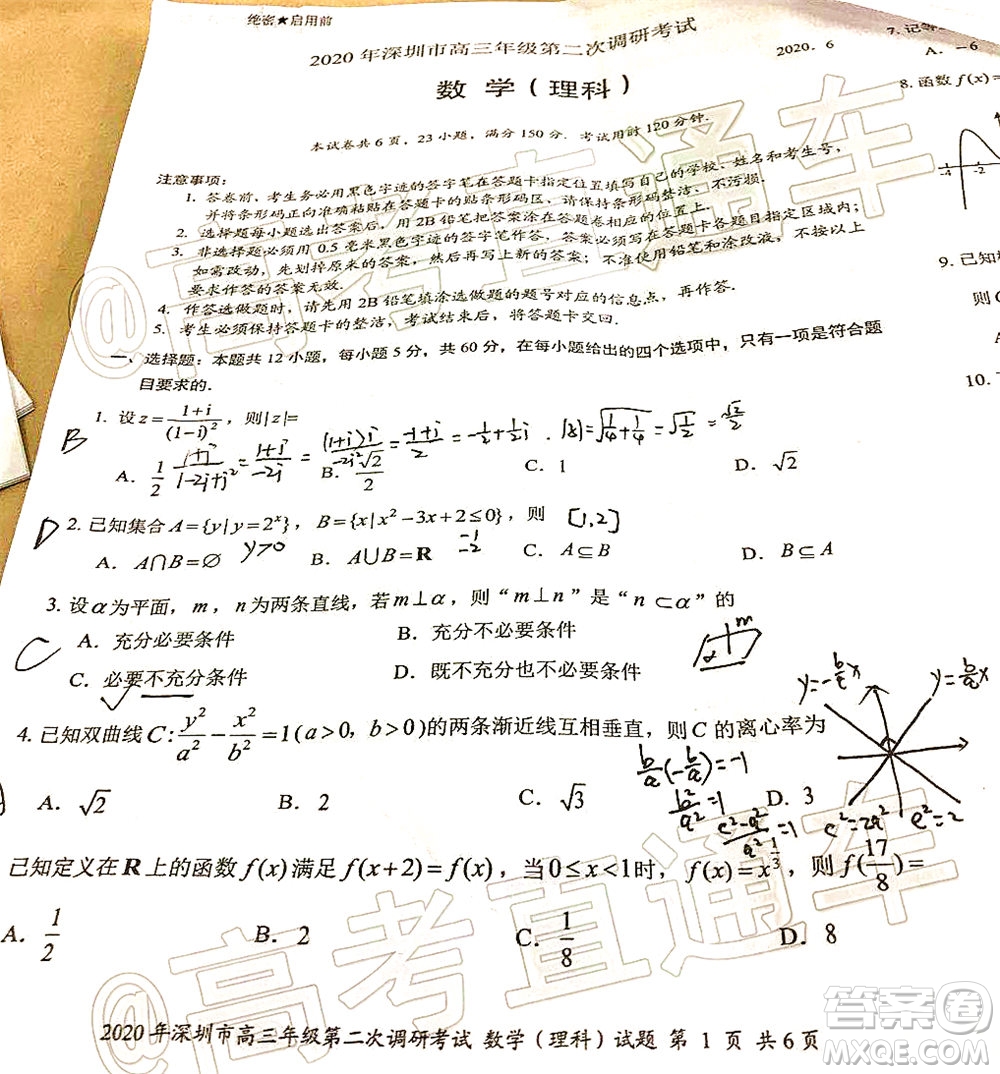 绝密★启用前
2020 年深圳市高三年级第二次调研考试
数 学（理科）
2020．6
本试卷共 6 页，23 小题，满分 150 分．考试用时 120 分钟．
注意事项：
1．答卷前，考生务必用黑色字迹的签字笔在答题卡指定位置填写自己的学校、姓名和考生号，
并将条形码正向准确粘贴在答题卡的贴条形码区，请保持条形码整洁、不污损．
2．选择题每小题选出答案后，用 2B 铅笔把答案涂在答题卷相应的位置上．
3．非选择题必须用 0.5 毫米黑色字迹的签字笔作答，答案必须写在答题卡各题目指定区域内；
如需改动，先划掉原来的答案，然后再写上新的答案；不准使用铅笔和涂改液，不按以上
要求作答的答案无效．
4．作答选做题时，请先用 2B 铅笔填涂选做题的题号对应的信息点，再作答．
5．考生必须保持答题卡的整洁，考试结束后，将答题卡交回．
一、选择题：本题共 12 小题，每小题 5 分，共 60 分，在每小题给出的四个选项中，只有一项是符合题
目要求的．
B 1．设 z=(1+i)/(1−i)²，则|z|=
(1+i)/(1−2i+i²) = (1+i)/(−2i) = (1+i)i/(−2i²) = (−1+i)/2 = −1/2+1/2i．|z|=√(1/4+1/4)=√(1/2)=√2/2
A．1/2 B．√2/2 C．1 D．√2
D 2．已知集合 A={y|y=2^x}，B={x|x²−3x+2≤0}，则 [1,2]
y>0 −1 −2
A．A∩B=∅ B．A∪B=R C．A⊆B D．B⊆A
C 3．设 α 为平面，m，n 为两条直线，若 m⊥α，则“m⊥n”是“n⊂α”的
A．充分必要条件 B．充分不必要条件
C．必要不充分条件 D．既不充分也不必要条件
m α
y=−b/a x y=b/a x
4．已知双曲线 C: y²/a² − x²/b² =1(a>0，b>0)的两条渐近线互相垂直，则 C 的离心率为
b/a(−b/a)=−1
b²/a²=1
(c²−a²)/a²=1 c²=2a² e²=2
A．√2 B．2 C．√3 D．3
已知定义在 R 上的函数 f(x)满足 f(x+2)=f(x)，当 0≤x<1 时，f(x)=x^(1/3)，则 f(17/8)=
A．1/2 B．2 C．1/8 D．8
2020 年深圳市高三年级第二次调研考试 数学（理科）试题 第 1 页 共 6 页
7．记
A．−6
8．函数 f(x)=
−4 −2
9．已知
则
10．
@高考直通车
@高考直通车
答案圈
MXQE.COM